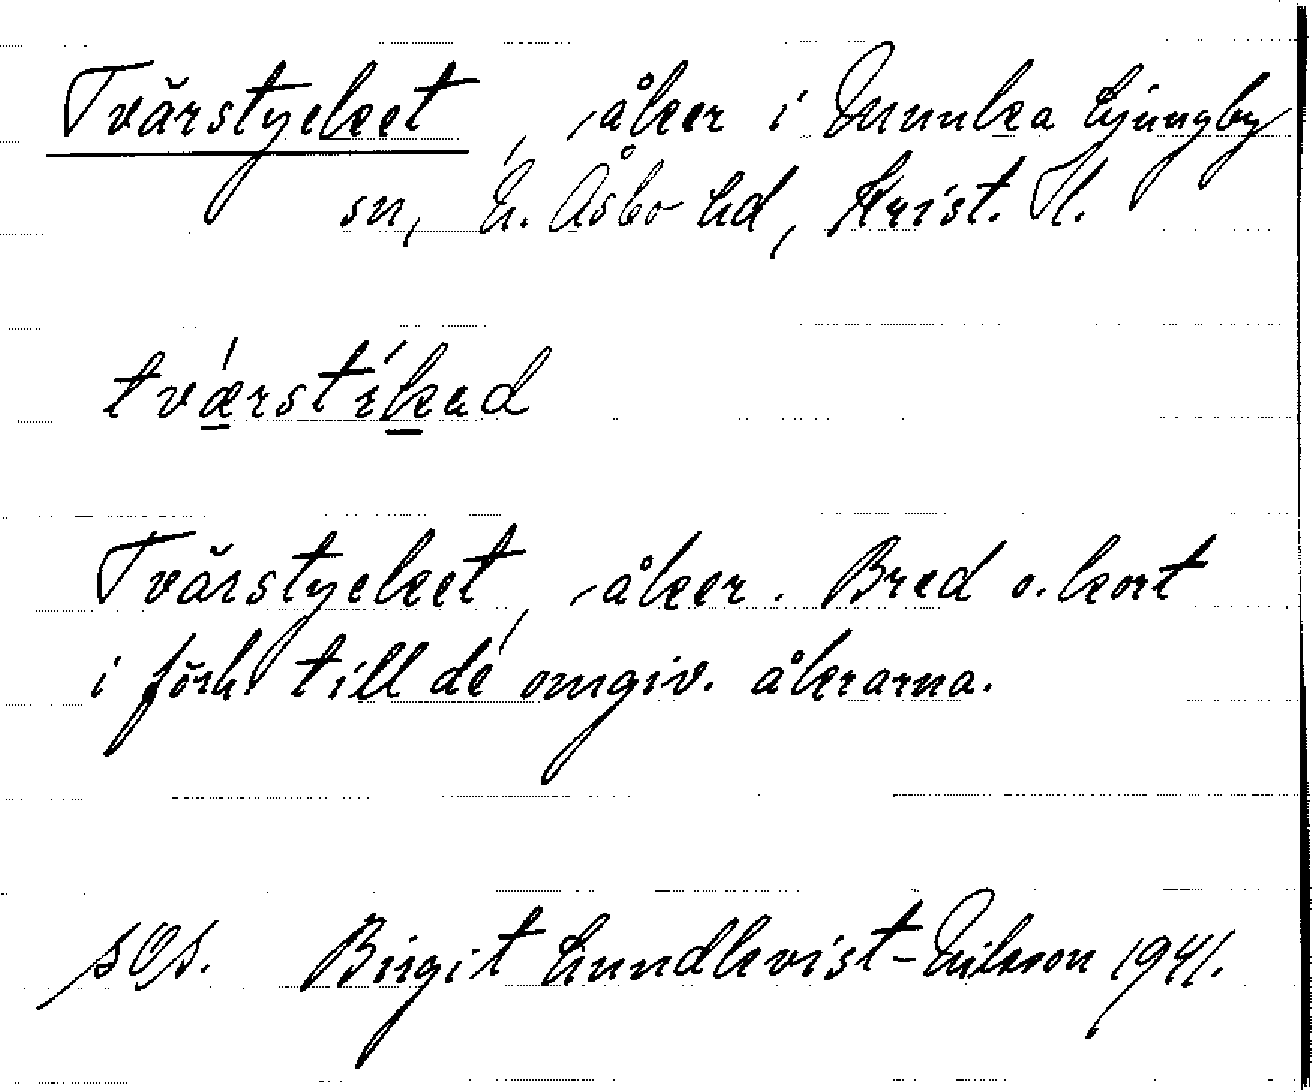 Tvärstycket, åker i Munka Ljungby
sn, N. Åsbo hd, Krist. l.
tvǽrstíkəd
Tvärstycket, åker. Bred o. kort
i förh. till de omgiv. åkrarna.
sOs. Birgit Lundkvist-Nilsson 1941.